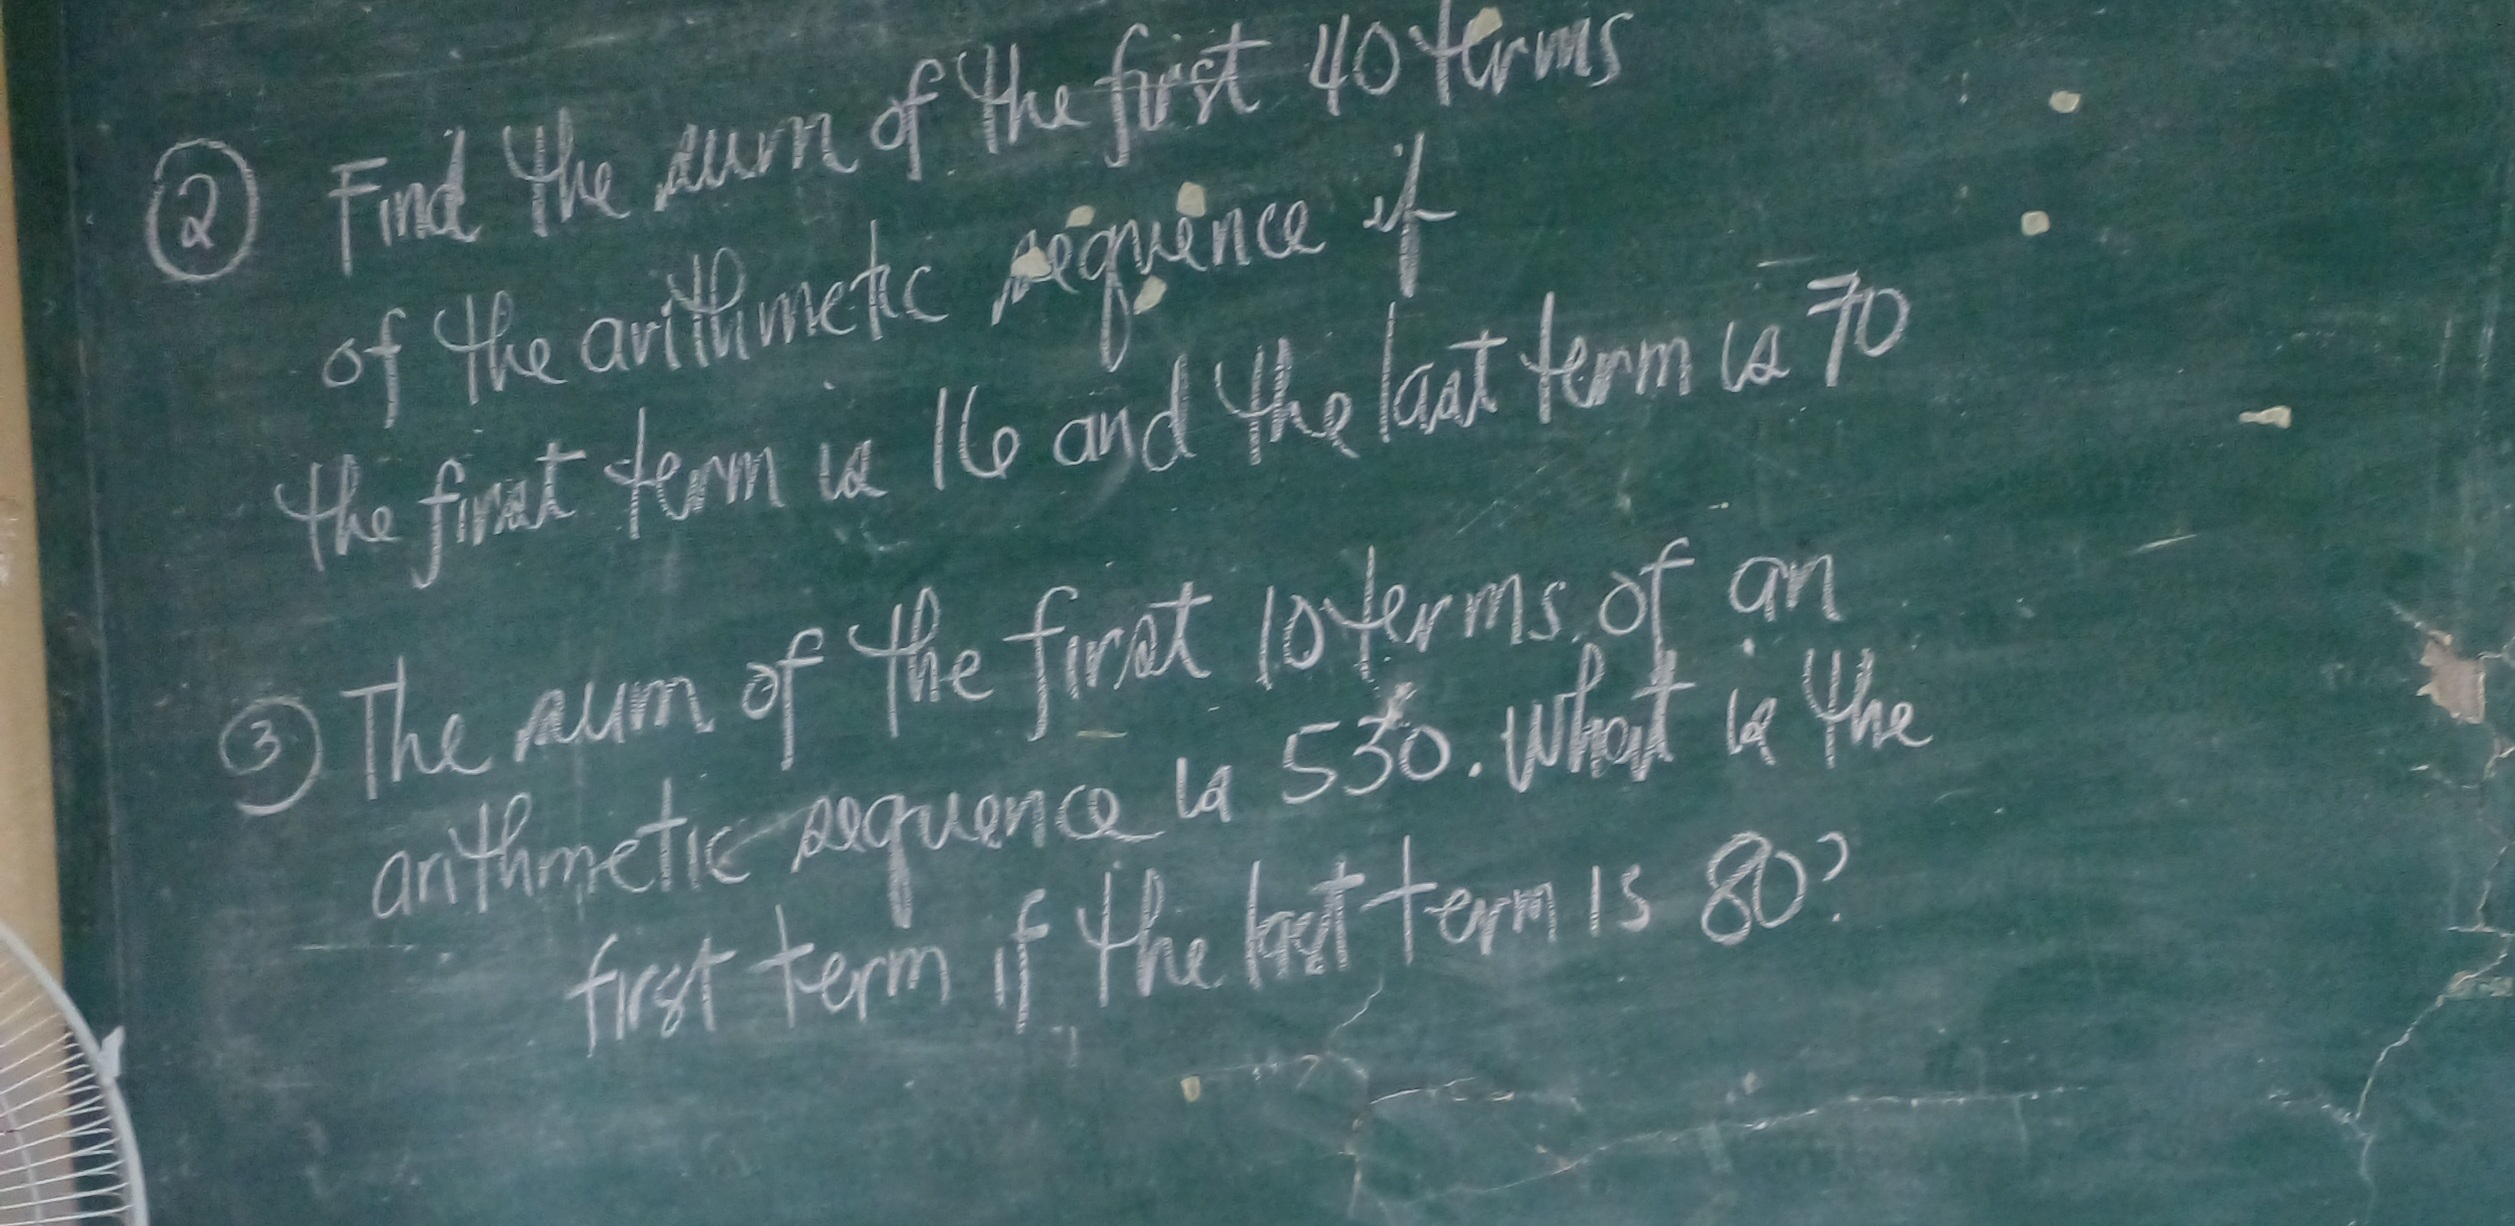 ② Find the sum of the first 40 terms
of the arithmetic sequence if
the first term is 16 and the last term is 70
③ The sum of the first 10 terms of an
arithmetic sequence is 530. What is the
first term if the last term is 80?